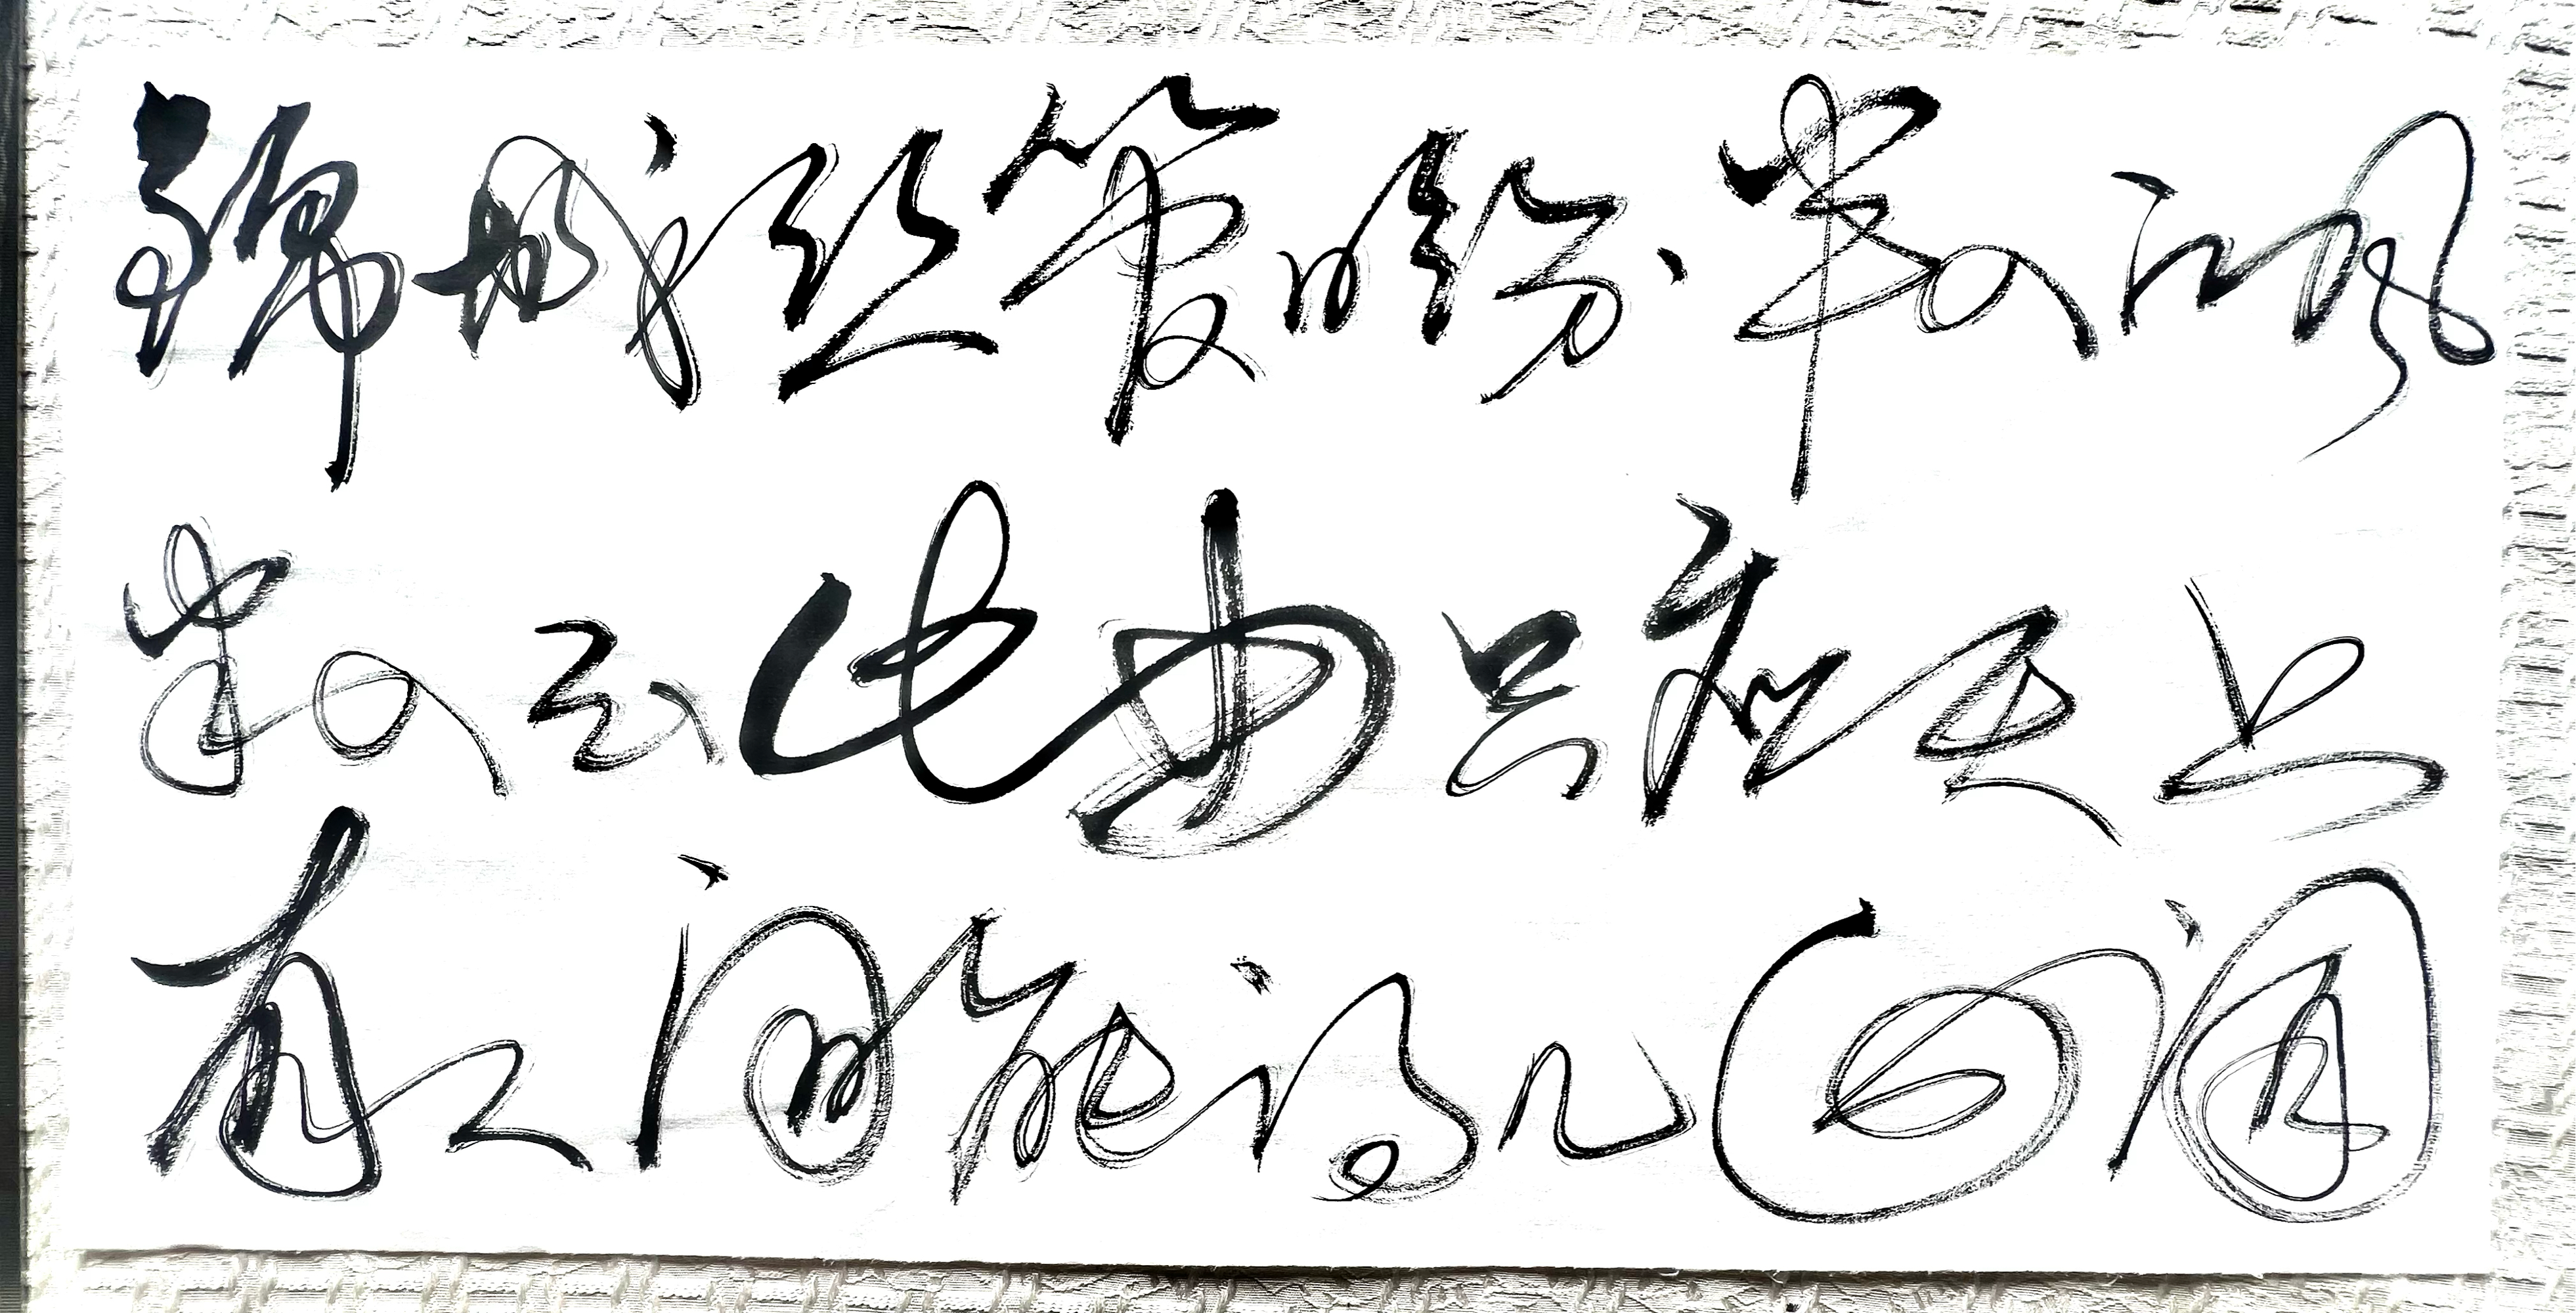 锦城丝管日纷纷半入江风
半入云此曲只应天上
有人间能得几回闻